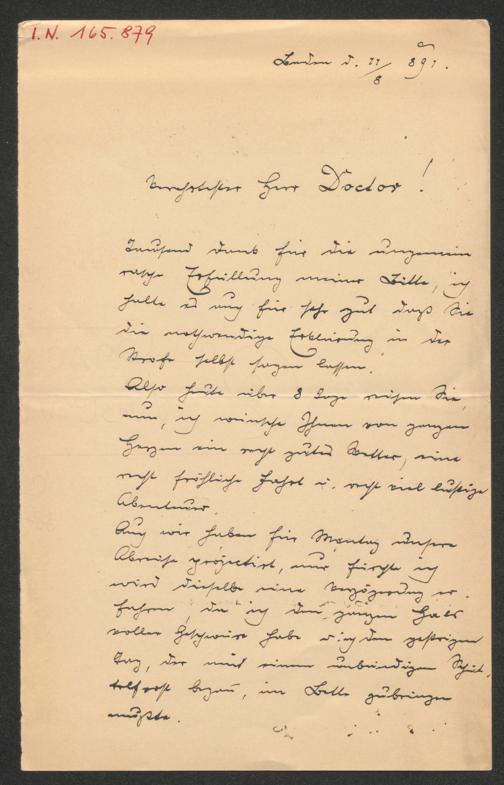 I.N. 165.879
Baden d. 21/8 891.
Verehrtester Herr Doctor!
Tausend Dank für die ungemein
rasche Erfüllung meiner Bitte, ich
halte es auch für sehr gut daß Sie
die nothwendige Erklärung in der
Strofe selbst sagen lassen.
Also heute über 8 Tage reisen Sie
nun, ich wünsche Ihnen von ganzen
Herzen ein recht gutes Wetter, eine
recht fröhliche Fahrt u. recht viel lustige
Abenteuer.
Auch wir haben für Montag unsere
Abreise projectirt, nur fürchte ich
wird dieselbe eine Verzögerung er-
fahren, da ich den ganzen Hals
voller Geschwüre habe u. ich den gestrigen
Tag, der mit einem unbändigen Schüt-
telfrost begann, im Bette zubringen
mußte.